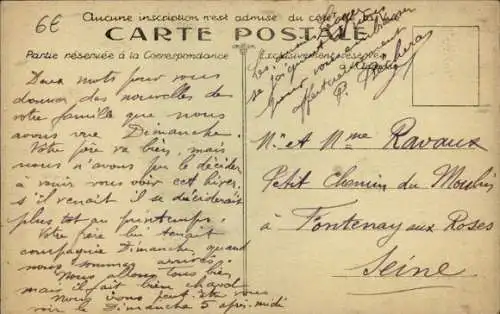 6€
Aucune inscription n'est admise du côté
CARTE POSTALE
Partie réservée à la Correspondance
Exclusivement réservée
se joignent à
pour vous embrasser
affectueusement
P.
Deux mots pour vous
donner des nouvelles de
votre famille que nous
avons vue Dimanche.
Votre père va bien, mais
nous n'avons pas le décider
à venir vous voir cet hiver.
s'il venait il se déciderait
plus tôt au printemps.
Votre frère lui tenait
compagnie Dimanche quand
nous sommes arrivés.
Nous allons tous bien
mais il fait bien chaud
Nous irons peut-être vous
voir le Dimanche 5 après-midi
Mr et Mme Ravaux
Petit Chemin du Moulin
à Fontenay aux Roses
Seine